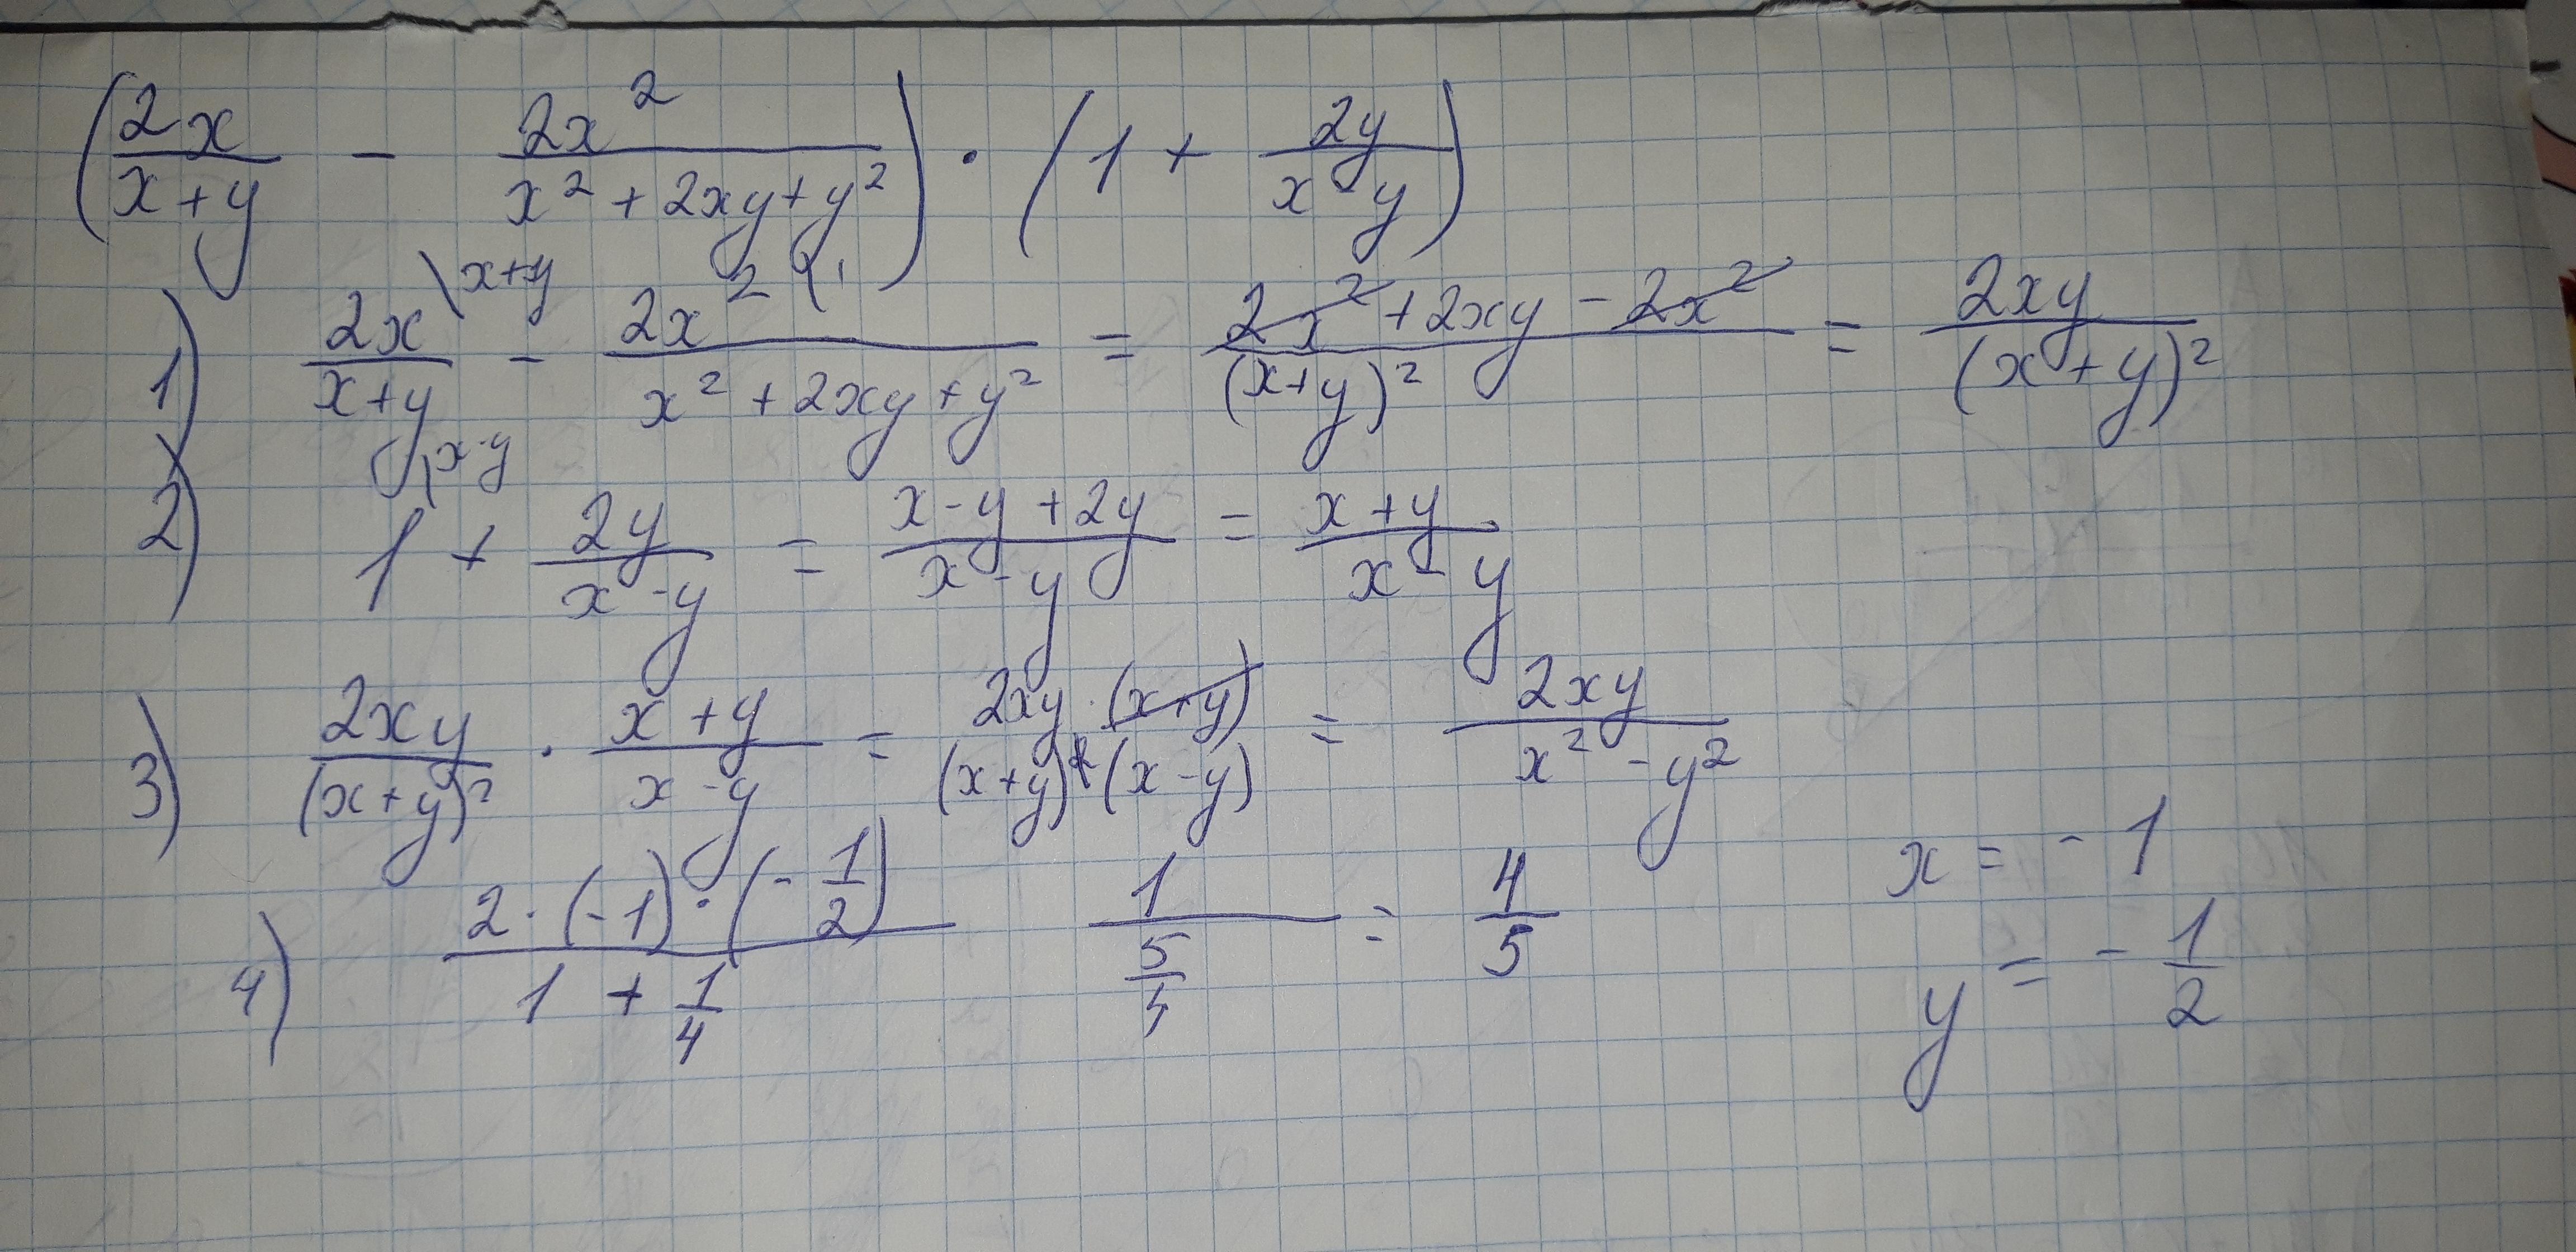 (2x/(x+y) - 2x²/(x²+2xy+y²)) · (1 + 2y/(x-y))
1) 2x\x+y/(x+y) - 2x²\1/(x²+2xy+y²) = (2x²+2xy-2x²)/(x+y)² = 2xy/(x+y)²
2) 1\x-y + 2y/(x-y) = (x-y+2y)/(x-y) = (x+y)/(x-y)
3) 2xy/(x+y)² · (x+y)/(x-y) = 2xy·(x+y)/(x+y)²(x-y) = 2xy/(x²-y²)
x = -1
4) 2·(-1)·(-1/2)/(1+1/4) 1/(5/4) = 4/5
y = -1/2